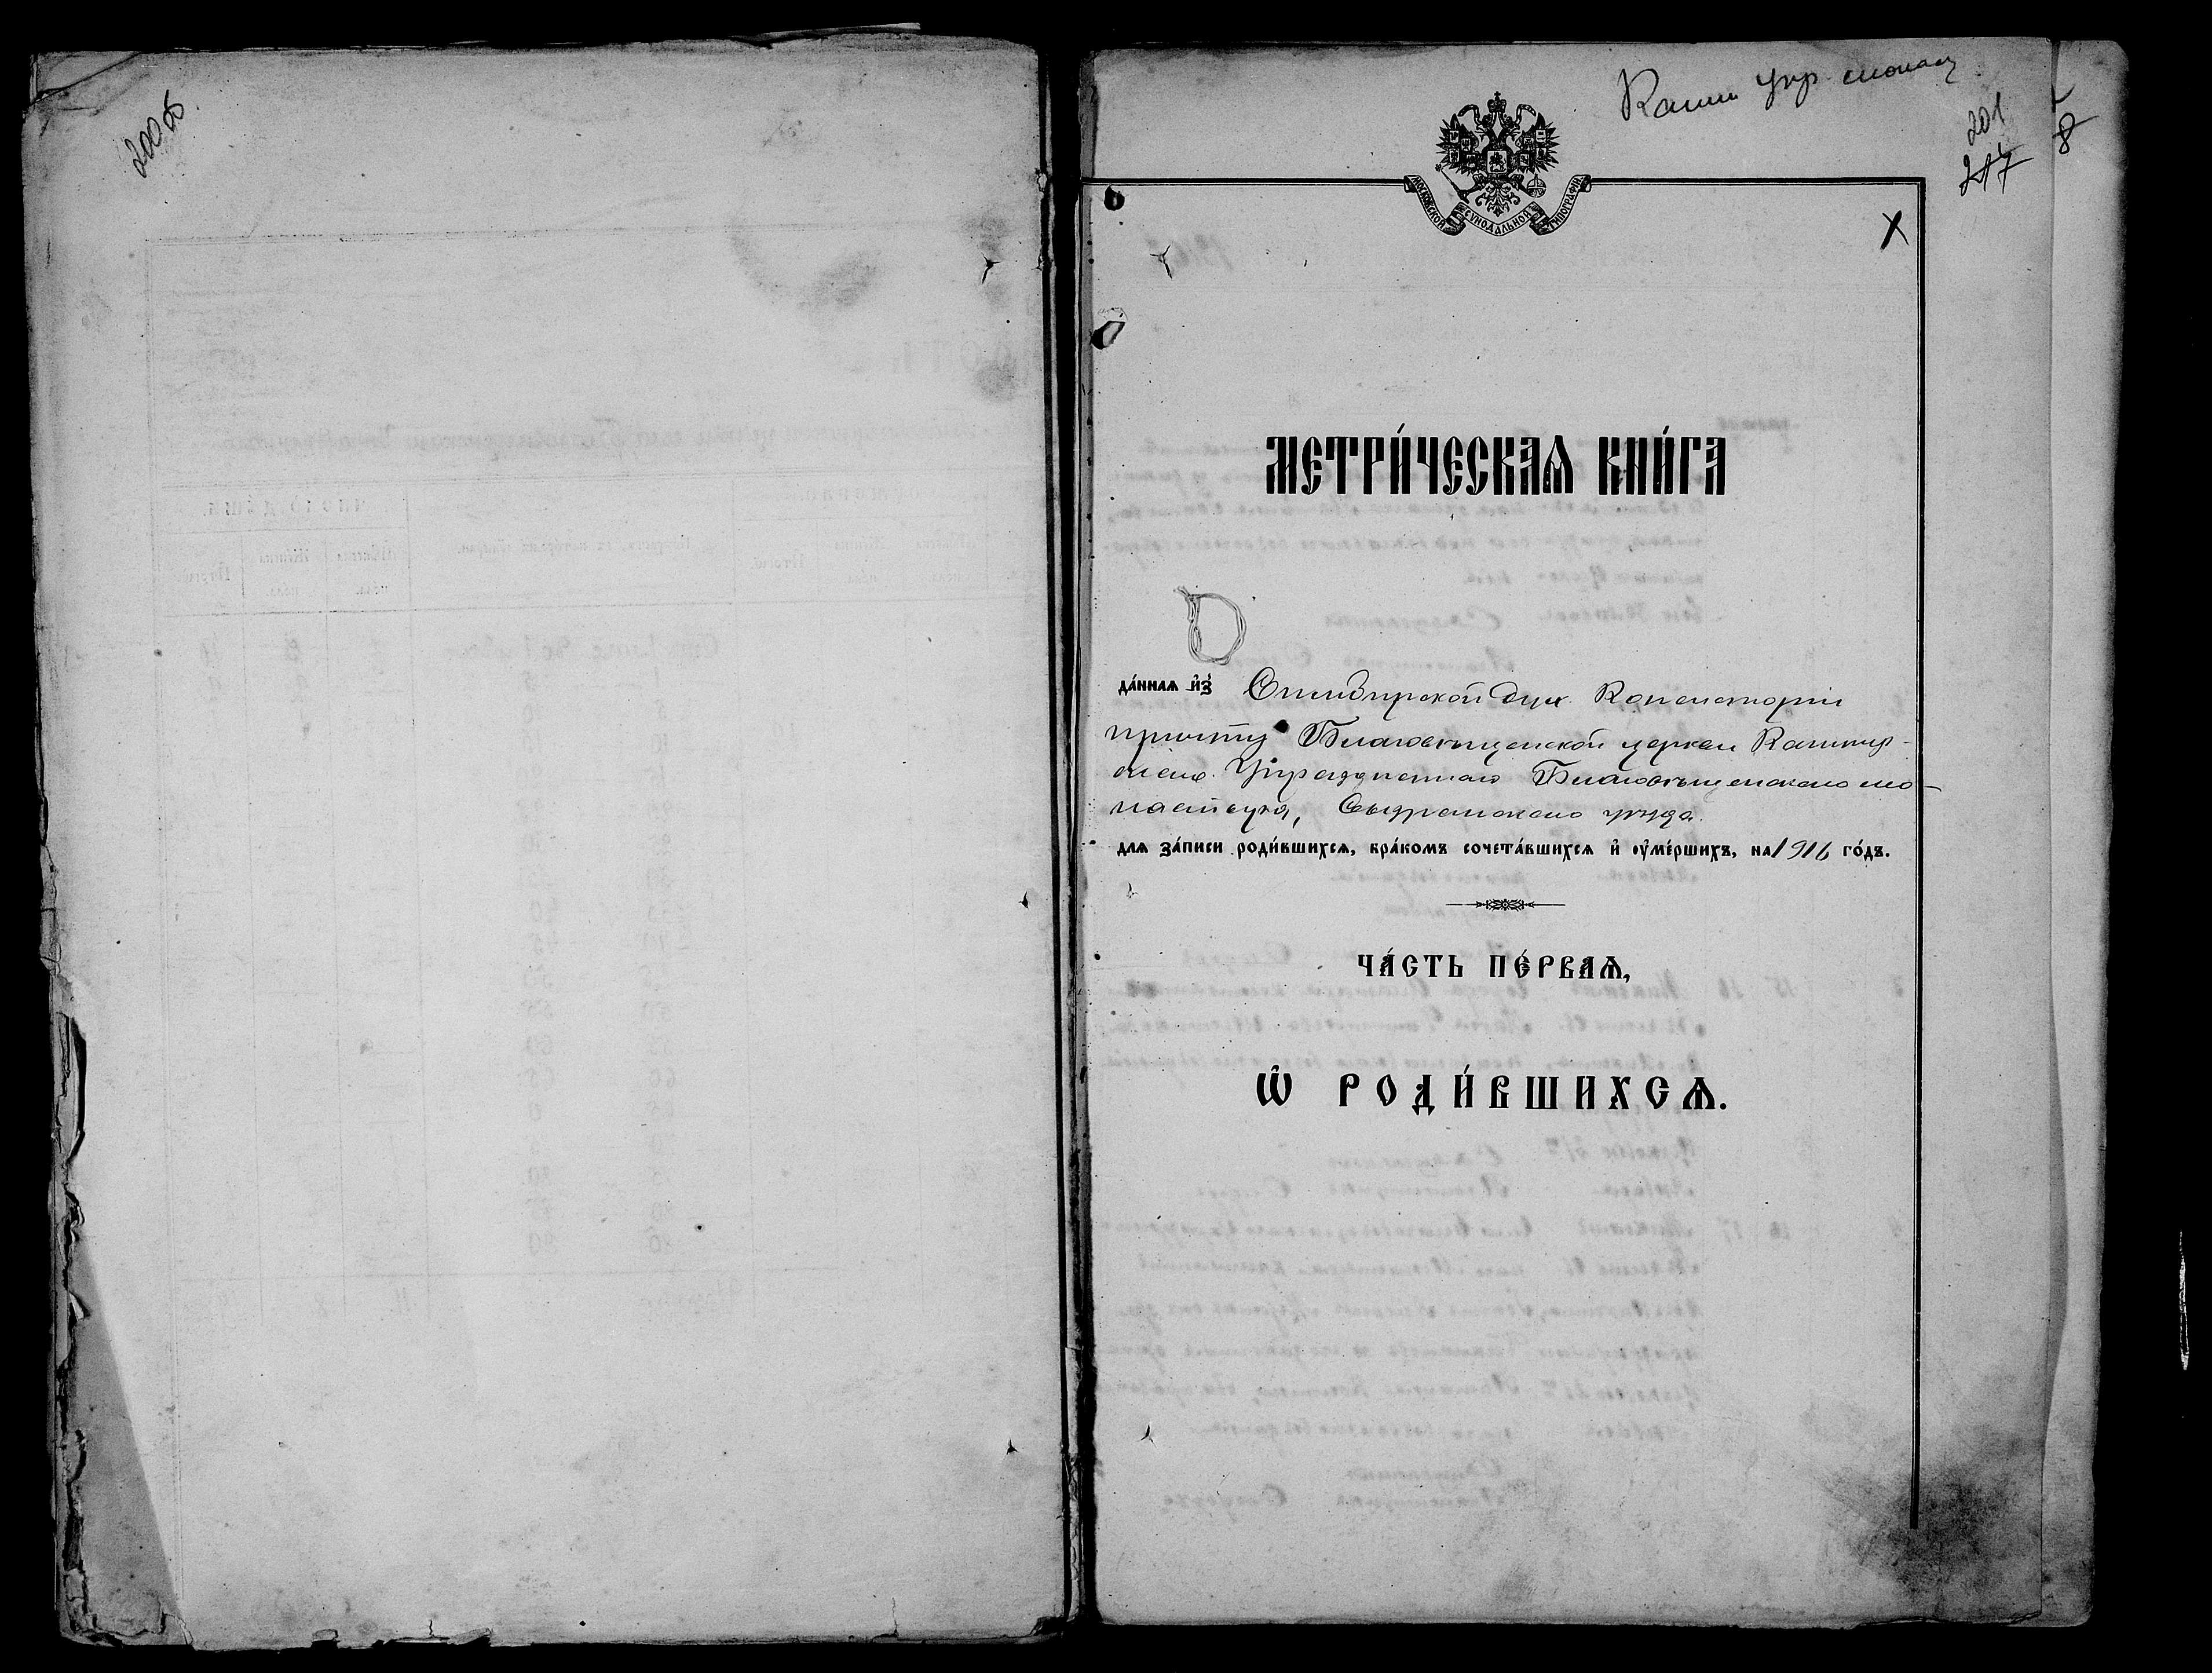 200 об
Кашп упр. монас
201
217
8
МОСКОВСКОЙ СѴНОДАЛЬНОЙ ТИПОГРАФІИ
X
МЕТРИ́ЧЕСКАѦ КНИ́ГА
да́ннаѧ и҆зъ Симбирской Дух. Консисторіи
причту Благовѣщенской церкви Кашпир-
скаго Упраздненнаго Благовѣщенскаго мо-
настыря, Сызранскаго уѣзда.
длѧ за́писи роди́вшихсѧ, бра́комъ сочета́вшихсѧ и҆ ᲂу҆ме́ршихъ, на 1916 го́дъ.
ЧА́СТЬ ПЕ́РВАѦ,
Ѽ РОДИ́ВШИХСѦ.